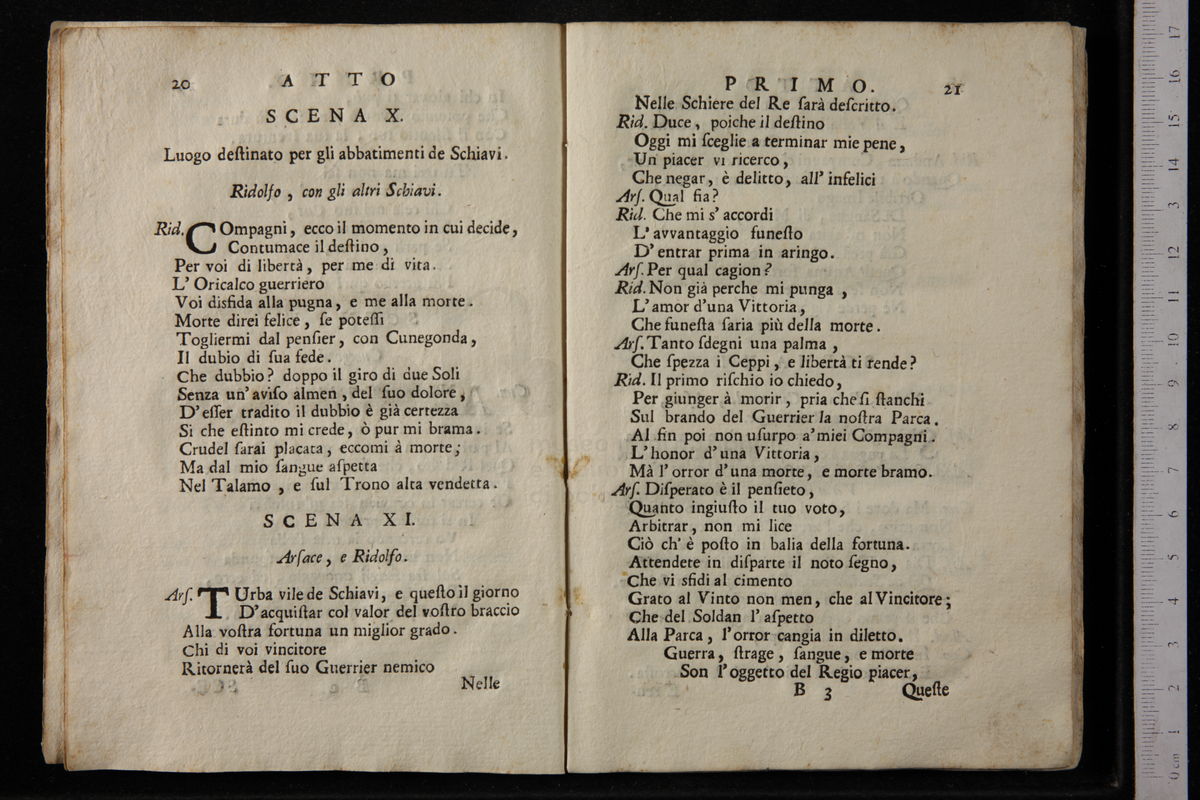 20 ATTO
SCENA X.
Luogo deſtinato per gli abbatimenti de Schiavi.
Ridolfo, con gli altri Schiavi.
Rid. COmpagni, ecco il momento in cui decide,
Contumace il deſtino,
Per voi di libertà, per me di vita.
L' Oricalco guerriero
Voi disfida alla pugna, e me alla morte.
Morte direi felice, ſe poteſſi
Togliermi dal penſier, con Cunegonda,
Il dubio di ſua fede.
Che dubbio? doppo il giro di due Soli
Senza un' aviſo almen, del ſuo dolore,
D' eſſer tradito il dubbio è già certezza
Si che eſtinto mi crede, ò pur mi brama.
Crudel ſarai placata, eccomi à morte;
Ma dal mio ſangue aſpetta
Nel Talamo, e ſul Trono alta vendetta.
SCENA XI.
Arſace, e Ridolfo.
Arſ. TUrba vile de Schiavi, e queſto il giorno
D'acquiſtar col valor del voſtro braccio
Alla voſtra fortuna un miglior grado.
Chi di voi vincitore
Ritornerà del ſuo Guerrier nemico
Nelle
PRIMO. 21
Nelle Schiere del Re ſarà deſcritto.
Rid. Duce, poiche il deſtino
Oggi mi ſceglie a terminar mie pene,
Un piacer vi ricerco,
Che negar, è delitto, all' infelici
Arſ. Qual fia?
Rid. Che mi s' accordi
L' avvantaggio funeſto
D' entrar prima in aringo.
Arſ. Per qual cagion?
Rid. Non già perche mi punga,
L' amor d'una Vittoria,
Che funeſta ſaria più della morte.
Arſ. Tanto ſdegni una palma,
Che ſpezza i Ceppi, e libertà ti rende?
Rid. Il primo riſchio io chiedo,
Per giunger à morir, pria che ſi ſtanchi
Sul brando del Guerrier la noſtra Parca.
Al fin poi non uſurpo a' miei Compagni.
L' honor d' una Vittoria,
Mà l' orror d' una morte, e morte bramo.
Arſ. Diſperato è il penſieto,
Quanto ingiuſto il tuo voto,
Arbitrar, non mi lice
Ciò ch' è poſto in balia della fortuna.
Attendete in diſparte il noto ſegno,
Che vi sfidi al cimento
Grato al Vinto non men, che al Vincitore;
Che del Soldan l' aſpetto
Alla Parca, l' orror cangia in diletto.
Guerra, ſtrage, ſangue, e morte
Son l' oggetto del Regio piacer,
B 3 Queſte
0 cm 1 2 3 4 5 6 7 8 9 10 11 12 13 14 15 16 17